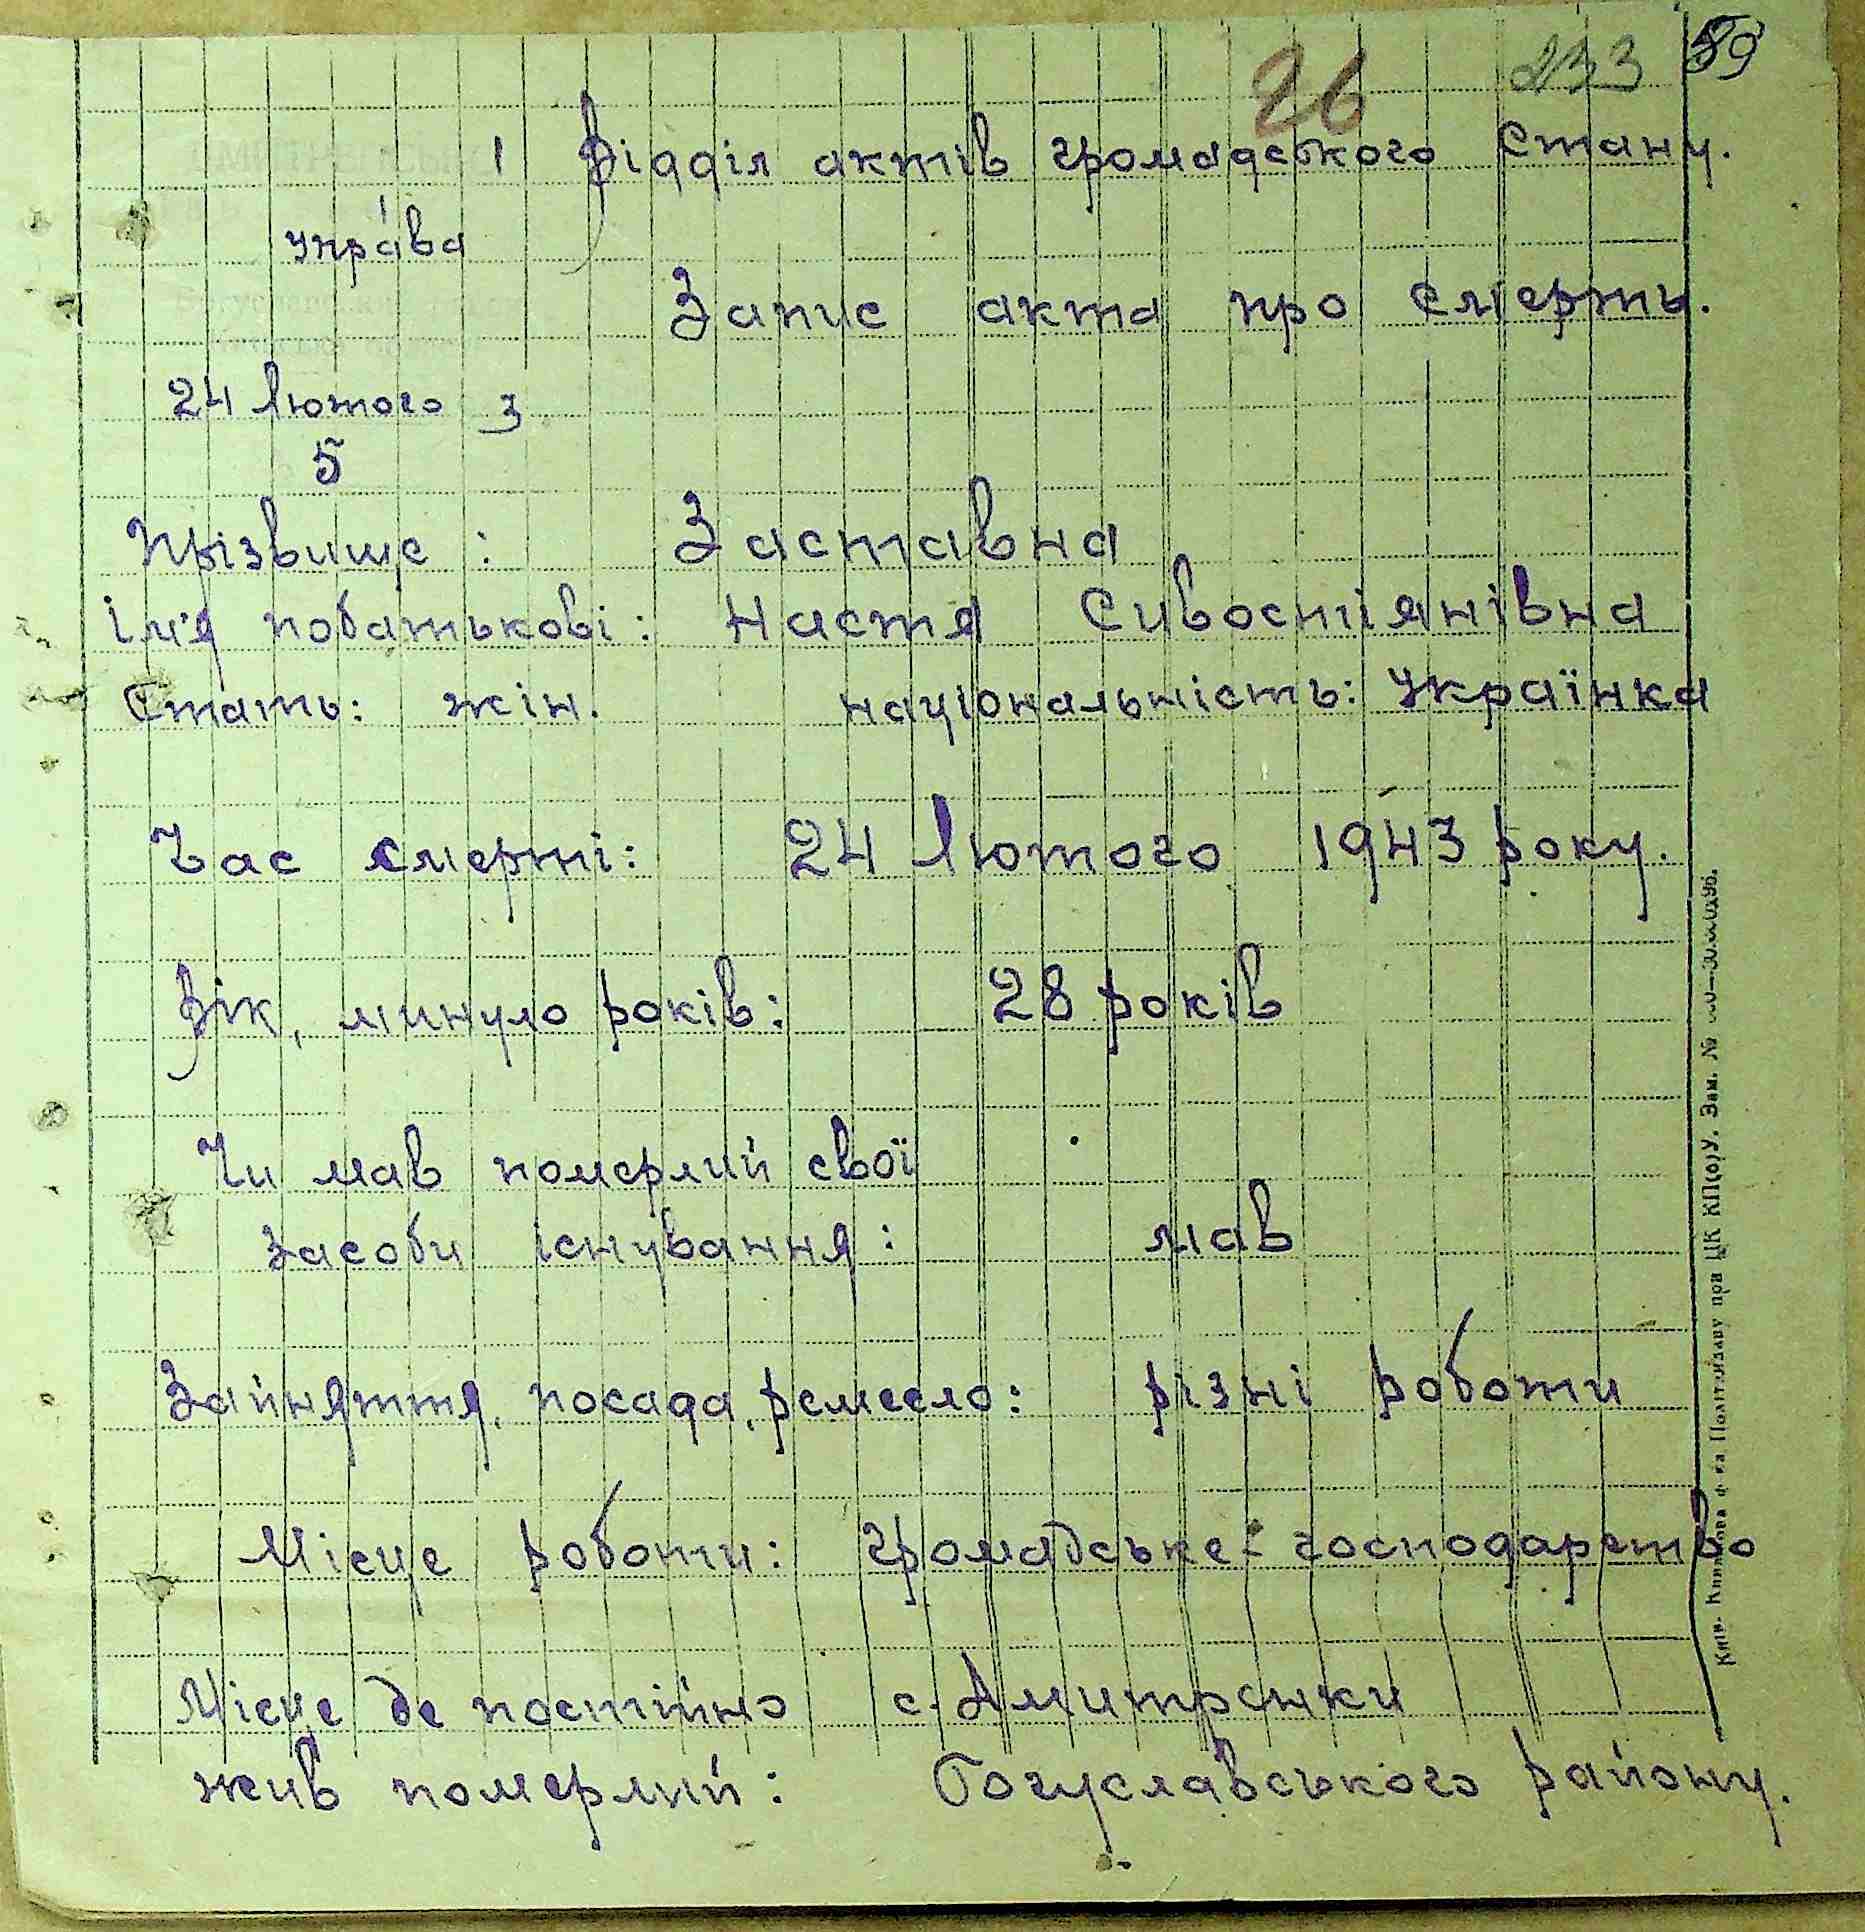 26 233 59
1 Відділ актів громадського стану.
Управа
Запис акта про смерть.
24 Лютого 3
5
Прізвище : Заставна
Ім'я побатькові: Настя Сивостіянівна
Стать: жін. національність: Українка
Час смерті: 24 Лютого 1943 року.
Вік, минуло років: 28 років
Чи мав померлий свої
засоби існування : мав
Зайняття, посада, ремесло: різні роботи
Місце роботи: громадське господарство
Місце де постійно с. Дмитренки
жив померлий: Богуславського району.
Київ- Книжкова ф-ка Політвидаву при ЦК КП(б)У. Зам. №